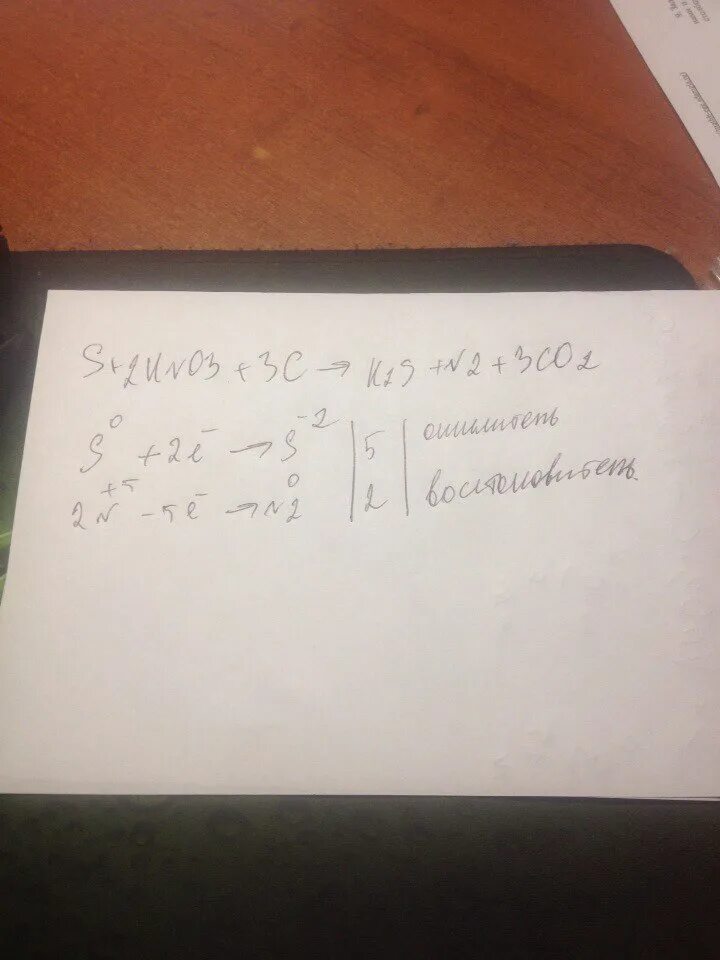 S+2KNO3 + 3C → K2S + N2 + 3CO2
S⁰ + 2ē → S⁻² | 5 | окислитель
2N⁺⁵ - 5ē → N2⁰ | 2 | восстановитель